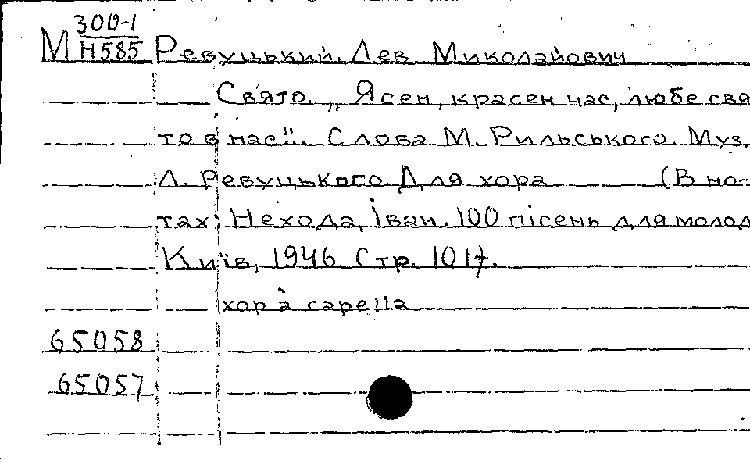 300-1
М Н585 Ревуцький, Лев Миколайович
Свято. „Ясен, красен час, любе свя
то в нас". Слова М. Рильського. Муз.
Л. Ревуцького Для хора (В но-
тах: Нехода, Іван. 100 пісень для молод
Київ, 1946 Стр. 101).
хор à capella
65058
65057